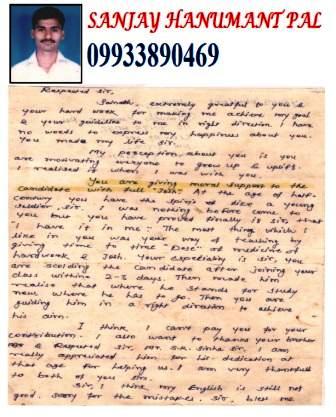 SANJAY HANUMANT PAL
09933890469
Respected Sir,
Sainath, extremely grateful to you &
your hard work for making me achieve my goal
& your guideline to me in right direction. I have
no words to express my happiness about you.
You made my life sir.
My perception about you is you
are motivating everyone to grow & uplift
I realised it when I was with you.
You are giving moral support to the
candidate with full "Josh" At the age of half-
century you have the spirit of like a young
soldier. Sir, I was nothing before come to
you but you have proved finally is sir, that
I have it in me." The most thing which I
like in you was your way of teaching by
giving time to time Dose of medicine of
hardwork & Josh. Your speciality is sir, you
are sending the candidate after joining your
class within 2-3 days. Then made him
realise that where he stands for study
and where he has to go. Then you are
guiding him in a right diration to achieve
his aim.
I think I can't pay you for your
contribution. I also want to thanks your brother
& Respected sir, Mr. S.K. Sinha Sir. I am
really appreciated him for his dedication at
that age for helping us. I am very thankful
to both of you sir.
Sir, I think, my English is still not
good, sorry for the mistakes. Sir, bless me